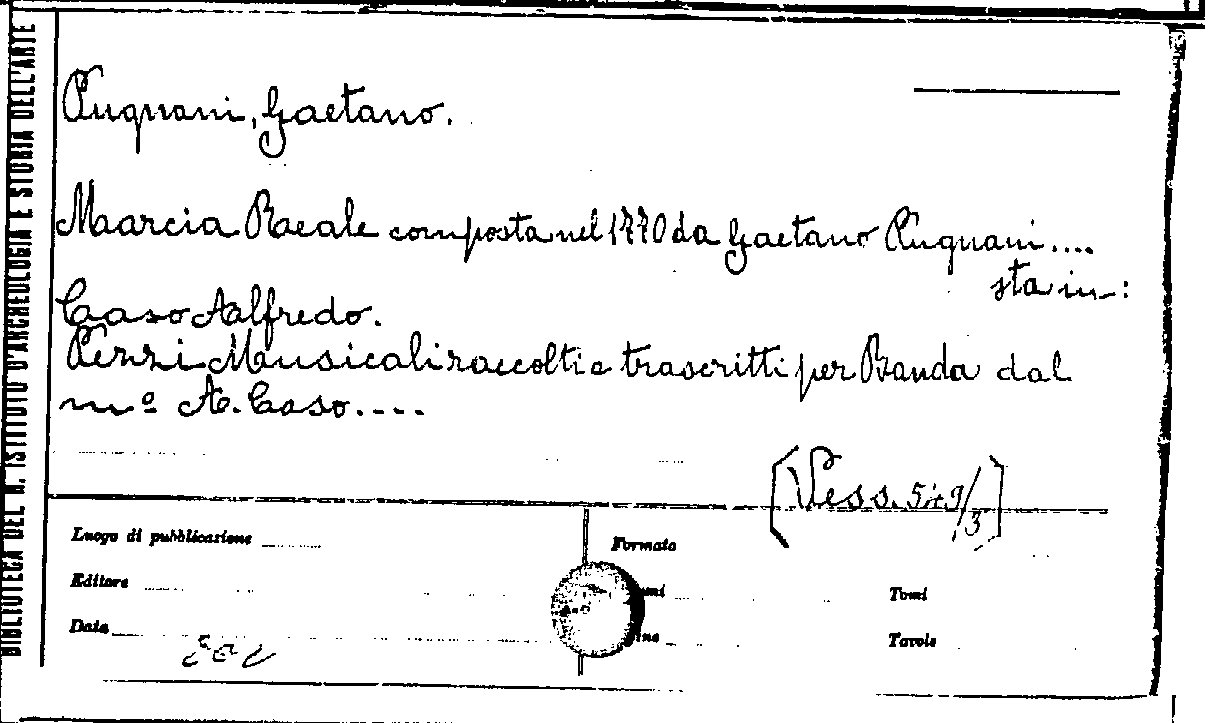 BIBLIOTECA DEL R. ISTITUTO D'ARCHEOLOGIA E STORIA DELL'ARTE
Pugnani, Gaetano.
Marcia Reale composta nel 1770 da Gaetano Pugnani....
sta in:
Caso Alfredo.
Pezzi Musicali raccolti e trascritti per Banda dal
mº A. Caso....
[Vess. 549/3]
Luogo di pubblicazione
Formato
Editore
Tomi
Data
Tavole